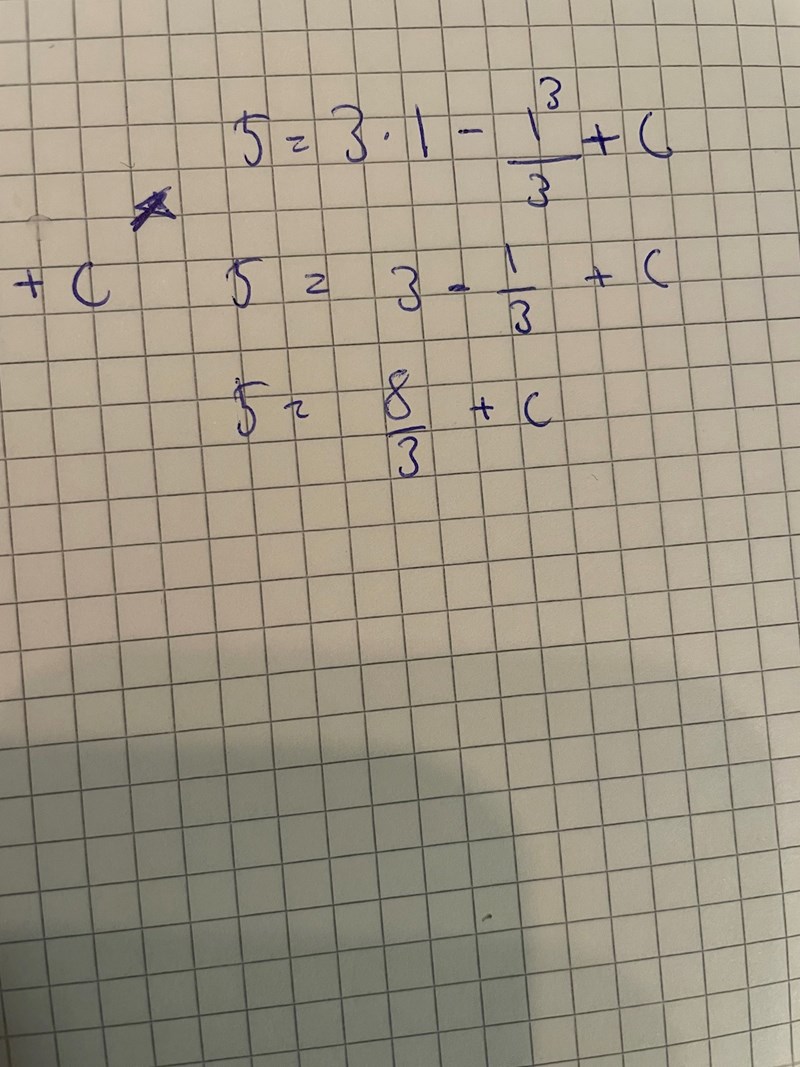 5 = 3 · 1 - 1³/3 + C
+ C 5 = 3 - 1/3 + C
5 = 8/3 + C